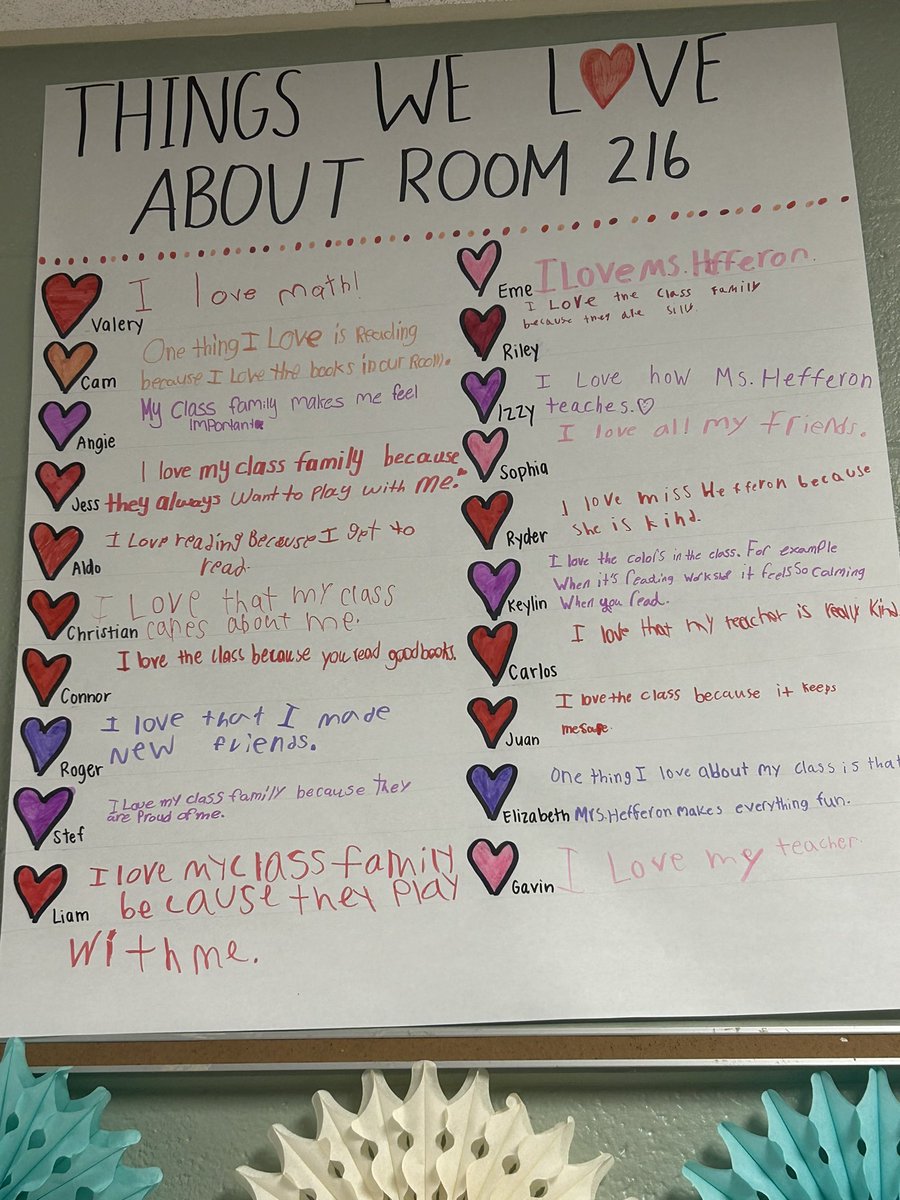 THINGS WE LOVE
ABOUT ROOM 216
Valery
I love math!
Cam
One thing I Love is Reading
because I Love the books in our Room.
Angie
My Class family makes me feel
Important
Jess
I love my class family because
they always want to play with me.
Aldo
I Love reading Because I get to
read.
Christian
I Love that my class
cares about me.
Connor
I love the class because you read good books.
Roger
I love that I made
new friends.
Stef
I Love my class family because they
are Proud of me.
Liam
I love my class family
because they play
with me.
Eme
I Love Ms. Hfferon.
Riley
I Love the class family
because they are silly.
Izzy
I Love how Ms. Hefferon
teaches.♡
Sophia
I love all my friends.
Ryder
I love miss Hefferon because
she is kind.
Keylin
I love the colors in the class. For example
When it's reading workshop it feels so calming
When you read.
Carlos
I love that my teacher is really kind
Juan
I love the class because it keeps
me safe.
Elizabeth
One thing I love about my class is that
Mrs. Hefferon makes everything fun.
Gavin
I Love my teacher.